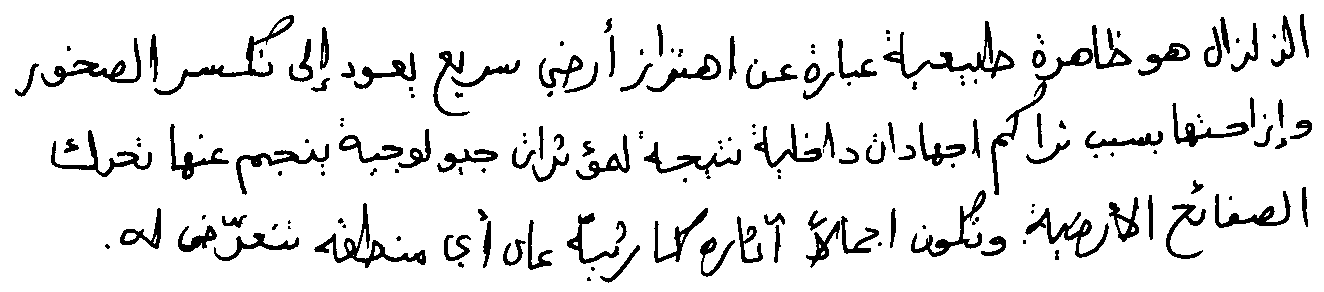 الزلزال هو ظاهرة طبيعية عبارة عن اهتزاز أرضي سريع يعود إلى تكسر الصخور
وإزاحتها بسبب تراكم اجهادات داخلية نتيجة لمؤثرات جيولوجية ينجم عنها تحرك
الصفائح الأرضية وتكون اجمالاً آثاره كارثيّة على أي منطقة تتعرّض له.